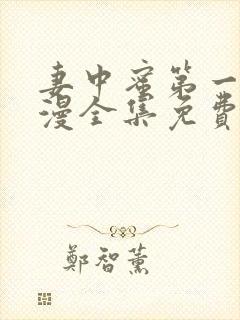 妻中蜜第一
漫全集免費
鄭智薰